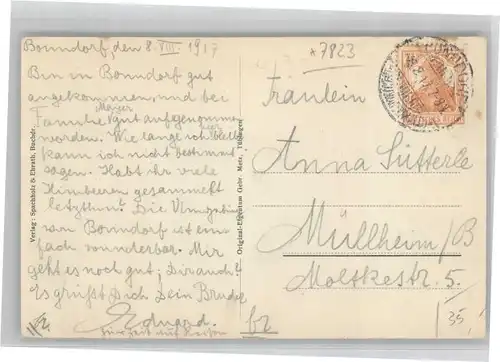 Bonndorf, den 8. VIII. 1917
Bin in Bonndorf gut
angekommen, und bei
Familie Maier gut aufgenommen
worden. Wie lange ich hier bleibe
kann ich nicht bestimmt
sagen. Habt ihr viele
Himbeeren gesammelt
letzthin? Die Umgebung
von Bonndorf ist ein-
fach wunderbar. Mir
geht es noch gut; Dir auch?
Es grüßt Dich Dein Bruder
Eduard.
zurzeit auf Reisen
Verlag: Spachholz & Ehrath, Bonndf.
Original-Eigentum Gebr. Metz, Tübingen
*7823
Fräulein
Anna Sütterle
Müllheim/B
Moltkestr. 5.
fr
35,-